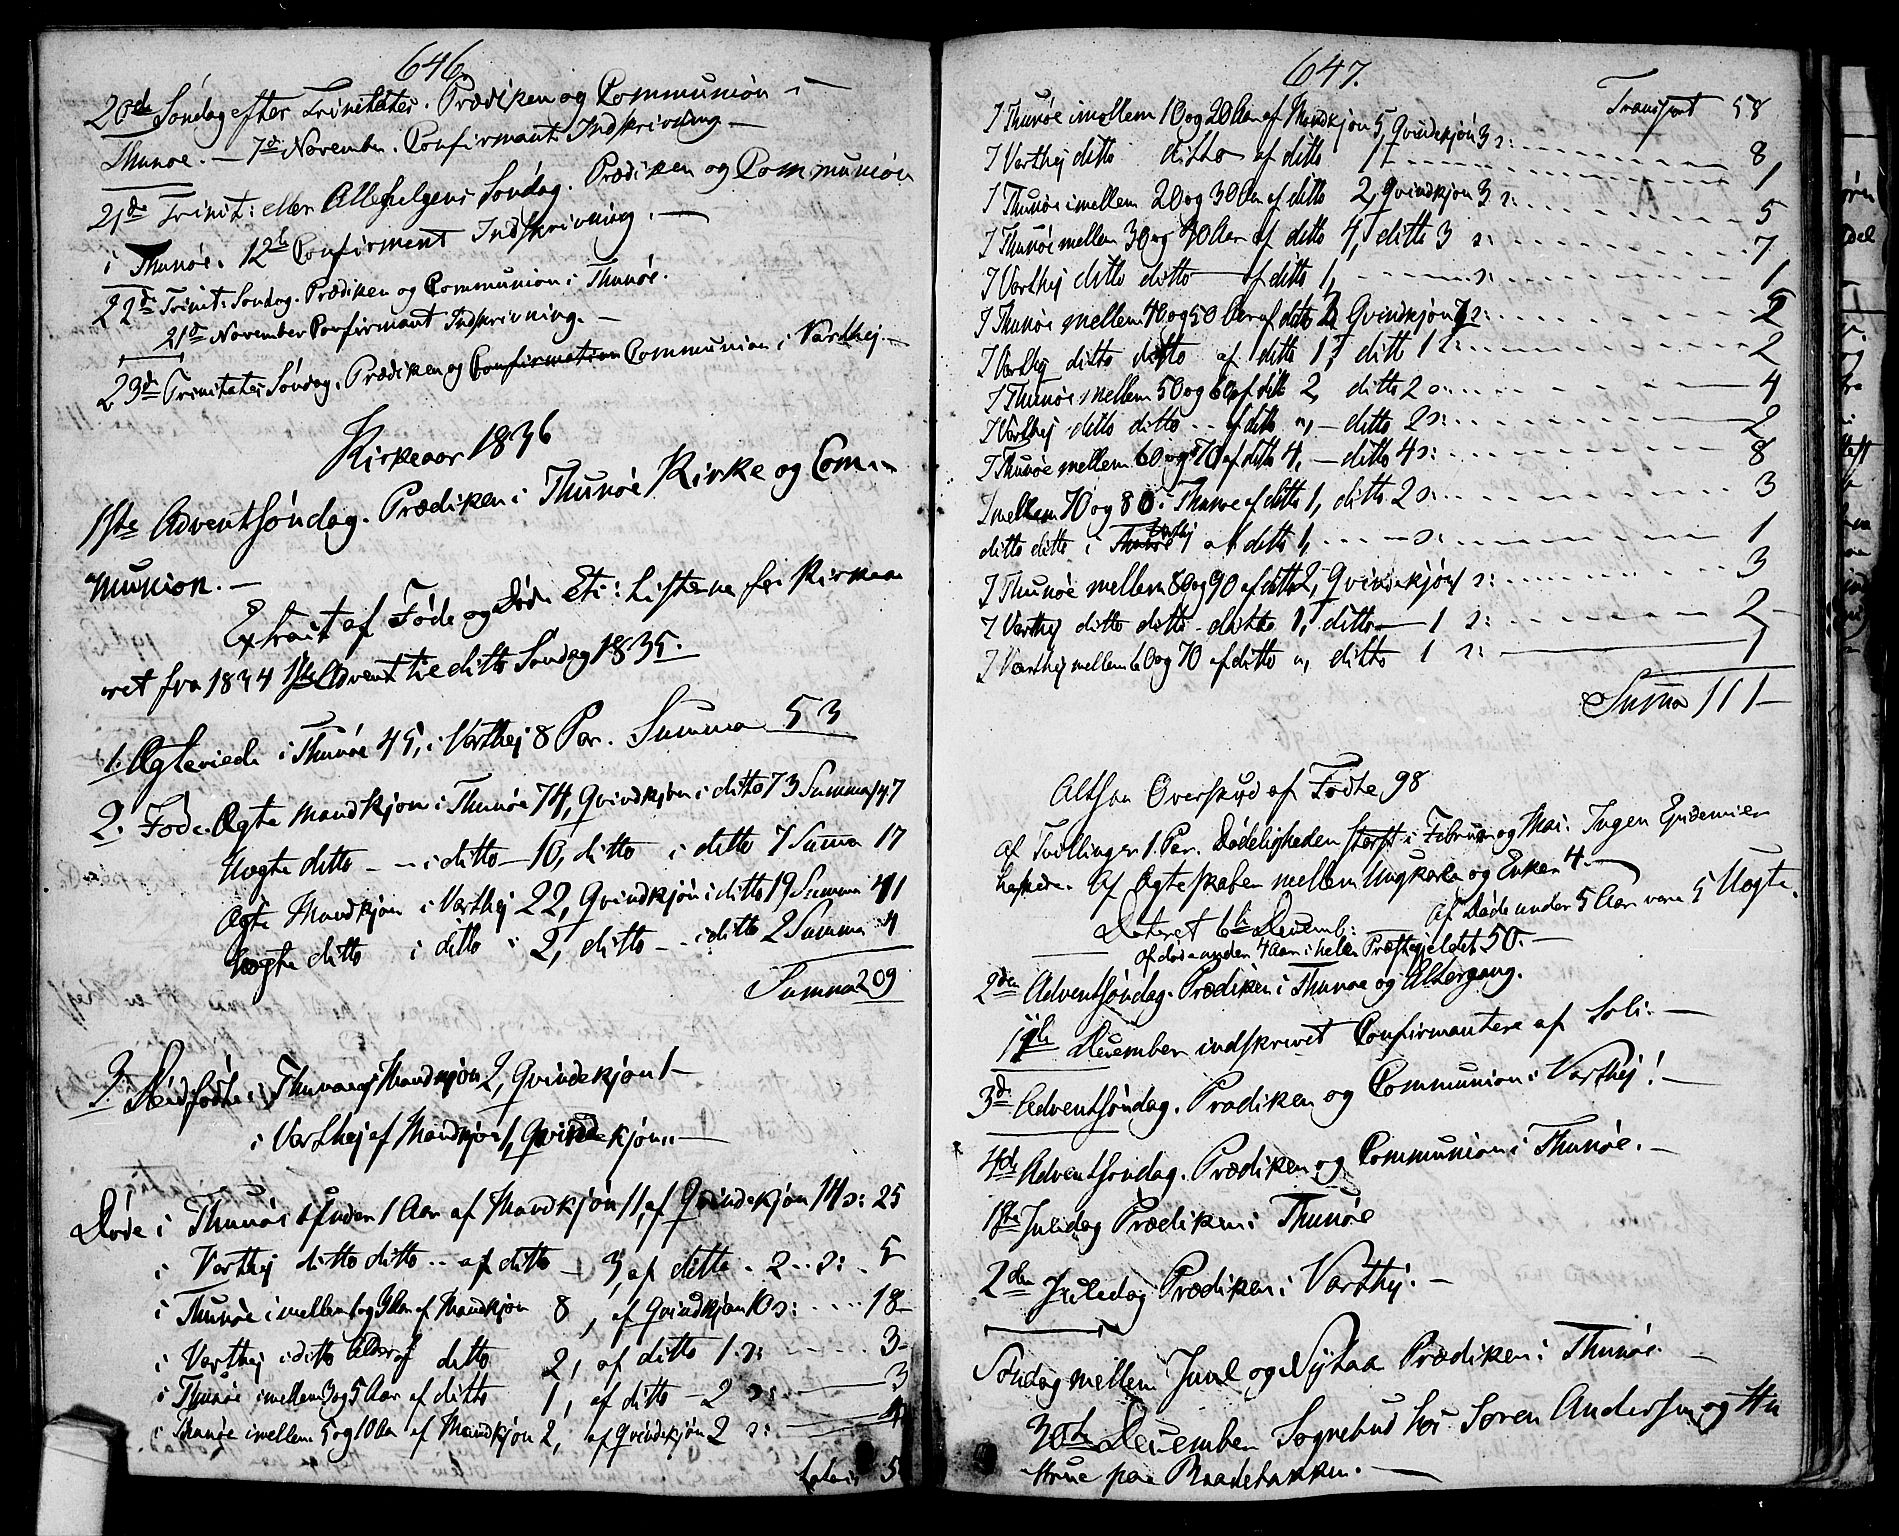 646.
20de Søndag efter Trinitatis. Prædiken og Communion –
Thunøe. – 7de November. Confirmant Indskrivning –
21de Trinit: eller Allehelgens Søndag. Prædiken og Communion
i Thunøe. 12te Confirment Indskrivning. –
22de Trinit: Søndag. Prædiken og Communion i Thunøe.
21de November Confirmant Indskrivning. –
23de Trinitatis Søndag. Prædiken og Confirmation Communion i Varthej. –
Kirkeaar 1836
1ste Adventsøndag. Prædiken i Thunøe Kirke og Com-
munion. –
Extract af Føde og Døde Etc: Listerne for Kirkeaa
ret fra 1834 1ste Advent til ditto Søndag 1835.
1. Ægteviede i Thunøe 45, i Varthej 8 Par. Summa 53
2. Føde. Ægte Mandkjøn i Thunøe 74, Qvindkjøn i ditto 73 Summa 147
Uægte ditto – i ditto – 10, ditto i ditto 7 Suma 17
Ægte Mandkjøn i Varthej 22, Qvindkjøn i ditto 19 Summa 41
Uægte ditto i ditto i 2, ditto – i ditto 2 Summa 4
Summa 209
3. Dødfødte i Mandkjøn 2, Qvindekjøn 1 –
i Varthej af Mandkjøn 1, Qvindekjøn „ –
Døde i Thunøe under 1 Aar af Mandkjøn 11, af Qvindekjøn 14 s: 25
i Varthej ditto ditto .. af ditto – 3, af ditto . 2 .. s: . 5
i Thunøe imellem 1 og 3 Aar af Mandkjøn 8, af Qvindkjøn 10 s: .... 18 –
i Varthej i ditto Alder af ditto 2, af ditto 1 s: ..... 3 –
i Thunøe imellem 3 og 5 Aar af ditto 1, af ditto – 2 s: – 3
i Thunøe imellem 5 og 10 Aar af Mandkjøn 2, af Qvindekjøn 2 s: – 4
Lateris 5
647.
Transport 58
I Thunøe imellem 10 og 20 Aar af Mandkjøn 5, Qvindekjøn 3 s: 8
I Varthej ditto ditto af ditto 1 – 1
I Thunøe imellem 20 og 30 Aar af ditto 2, Qvindkjøn 3 s: 5
I Thunøe mellem 30 og 40 Aar af ditto 4, ditto 3 s: 7
I Varthej ditto ditto – af ditto 1, – s: 1
I Thunøe mellem 40 og 50 Aar af ditto Qvindkjøn s:
I Varthej ditto ditto af ditto 1, ditto 1 s: 2
I Thunøe mellem 50 og 60 af ditto 2, ditto 2 s: 4
I Varthej ditto ditto .. af ditto „, – ditto 2 s: 2
I Thunøe mellem 60 og 70 af ditto 4, – ditto 4 s: 8
I mellem 70 og 80 i Thunøe af ditto 1, ditto 2 s: 3
ditto ditto i Thunøe Varthej af ditto 1, – s: 1
I Thunøe mellem 80 og 90 af ditto 2, Qvindekjøn 1 s: 3
I Varthej ditto ditto – ditto 1, ditto – 1 s: 2 –
I Varthej mellem 60 og 70 af ditto „, ditto 1 s: – 1
Suma 111 –
Altsaa Overskud af Fødte 98
Af Tvillinger 1 Par. Dødeligheden størst i Februar og Mai. Ingen Epidemier
herskede. Af Ægteskaber mellem Ungkarle og Enker 4. –
Af Døde under 5 Aar vare 5 Uægte.
Dateret 6te Decemb:
af døde under 4 Aar i hele Præstegjeldet 50. –
2den Adventsøndag. Prædiken i Thunøe og Altergang.
11te December indskrevet Confirmantere af Soli. –
3de Adventsøndag. Prædiken og Communion i Varthej! –
4de Adventsøndag. Prædiken og Communion i Thunøe. –
1ste Juledag Prædiken i Thunøe
2den Juledag Prædiken i Varthej. –
Søndag mellem Juul og Nytaar Prædiken i Thunøe. –
30te December Sognebud hos Søren Andersen og Hu
strue paa Raadebakken. –